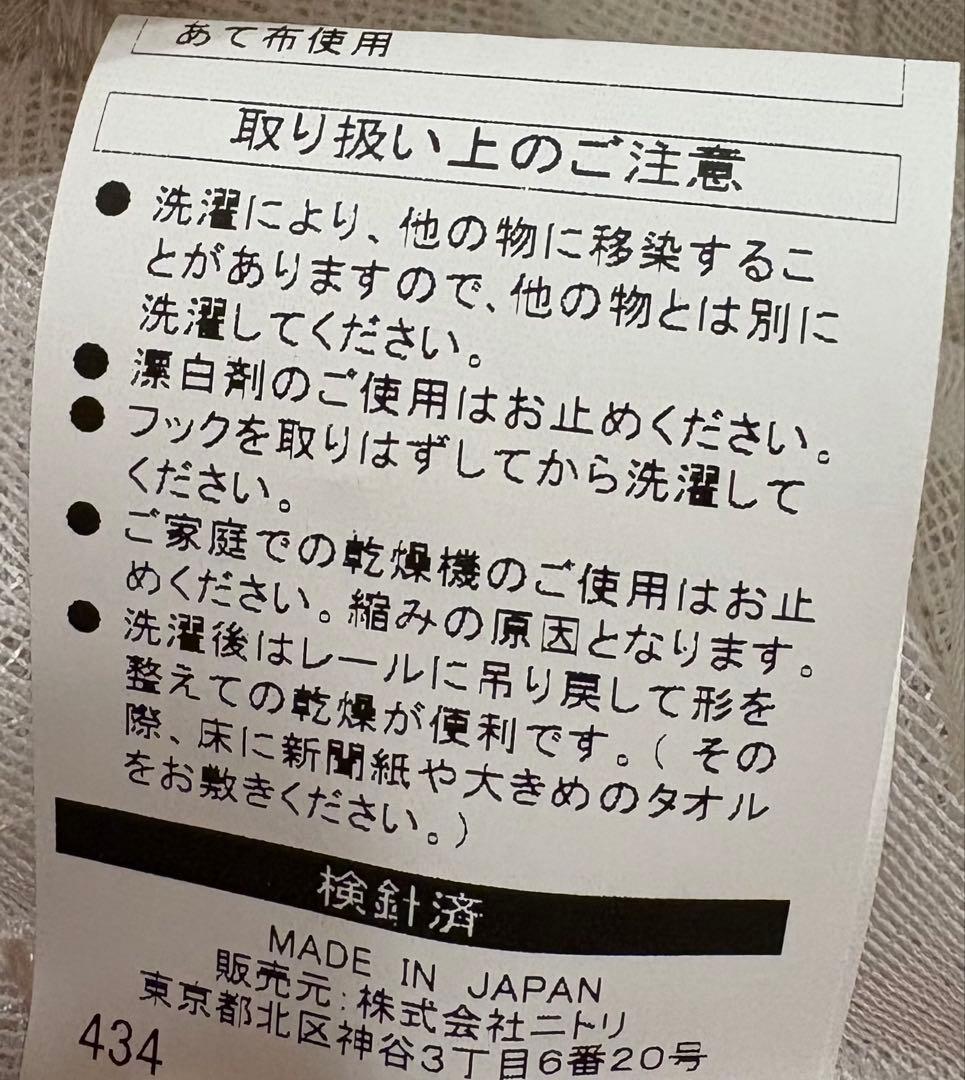 あて布使用
取り扱い上のご注意
● 洗濯により、他の物に移染するこ
とがありますので、他の物とは別に
洗濯してください。
● 漂白剤のご使用はお止めください。
● フックを取りはずしてから洗濯して
ください。
● ご家庭での乾燥機のご使用はお止
めください。縮みの原因となります。
● 洗濯後はレールに吊り戻して形を
整えての乾燥が便利です。(その
際、床に新聞紙や大きめのタオル
をお敷きください。)
検針済
MADE IN JAPAN
販売元:株式会社ニトリ
東京都北区神谷3丁目6番20号
434